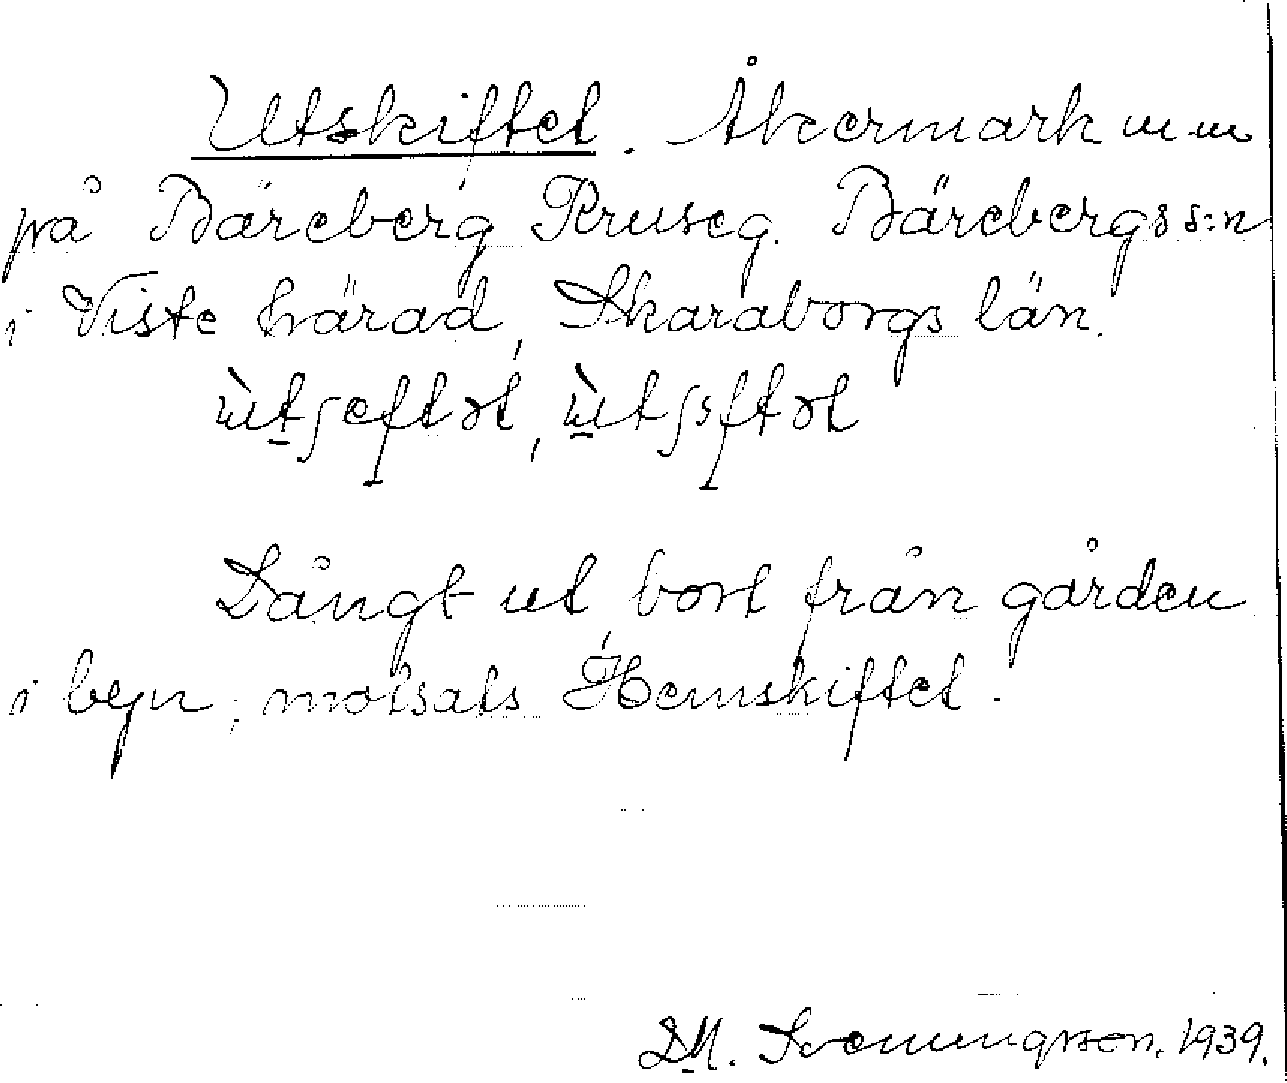 Utskiftet. Åkermark m m
på Bäreberg Kruseg. Bärebergs s:n
i Viste härad, Skaraborgs län.
ùtʃeftət, ùtʃıftət
Långt ut, bort från gården
i byn; motsats Hemskiftet.
D.M. Svenningsson. 1939.